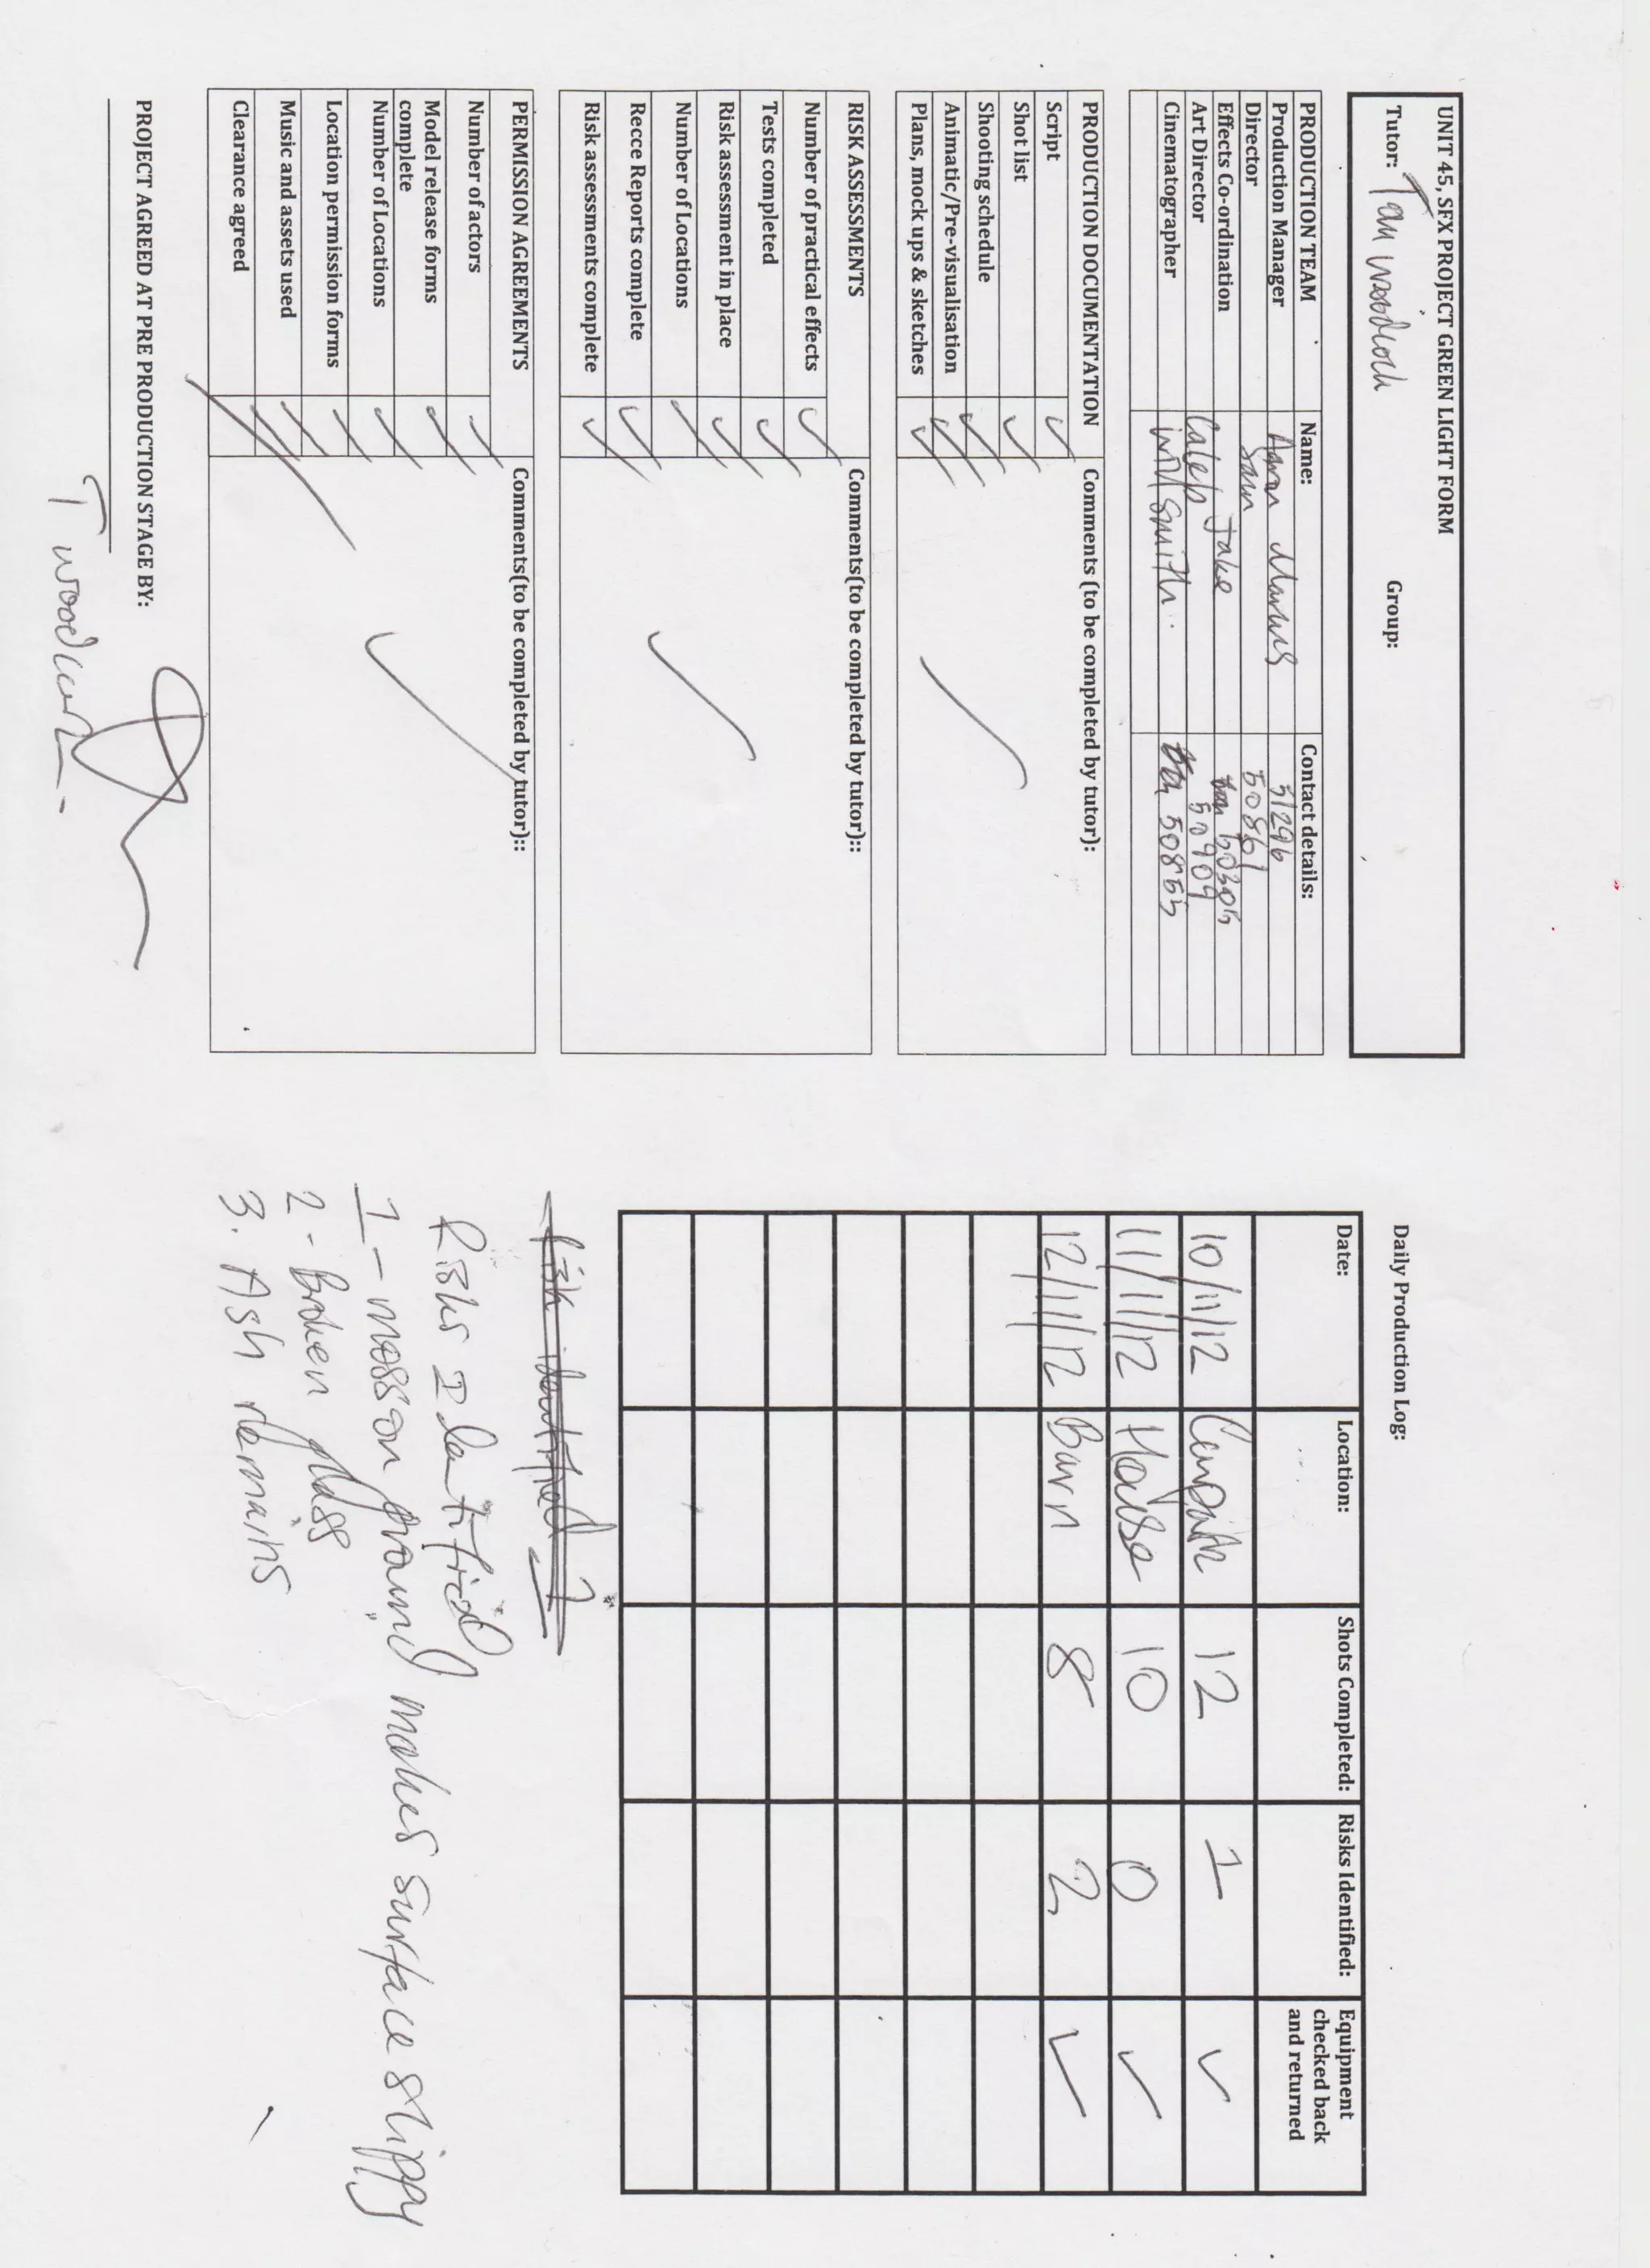 UNIT 45, SFX PROJECT GREEN LIGHT FORM
Tutor: Ian Woodcock Group:
PRODUCTION TEAM Name: Contact details:
Production Manager 51296
Director Sam 50861
Effects Co-ordination Jake 50305
Art Director Caleb 50909
Cinematographer Will Smith 50855
PRODUCTION DOCUMENTATION Comments (to be completed by tutor):
Script ✓
Shot list ✓
Shooting schedule ✓
Animatic/Pre-visualisation ✓
Plans, mock ups & sketches ✓
RISK ASSESSMENTS Comments(to be completed by tutor)::
Number of practical effects ✓
Tests completed ✓
Risk assessment in place ✓
Number of Locations ✓
Recce Reports complete ✓
Risk assessments complete ✓
PERMISSION AGREEMENTS Comments(to be completed by tutor)::
Number of actors ✓
Model release forms
complete ✓
Number of Locations ✓
Location permission forms ✓
Music and assets used ✓
Clearance agreed ✓
PROJECT AGREED AT PRE PRODUCTION STAGE BY:
T Woodcock
Daily Production Log:
Date: Location: Shots Completed: Risks Identified: Equipment
checked back
and returned
10/11/12 12 1 ✓
11/11/12 House 10 0 ✓
12/11/12 Barn 8 2 ✓
Risk identified
Risks Identified
1 - moss on ground makes surface slippy
2 - Broken glass
3. Ash remains